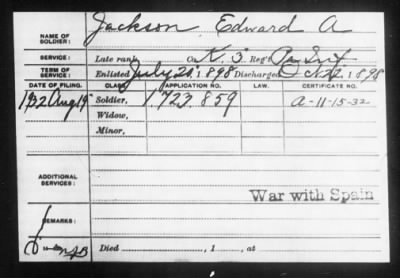 Jackson Edward A
NAME OF SOLDIER:
SERVICE: Late rank Co K, 5" Reg't Pa Inf
TERM OF SERVICE: Enlisted July 21, 1898 Discharged Oct 22, 1898
DATE OF FILING. CLASS. APPLICATION NO. LAW. CERTIFICATE NO.
1932 Aug 19 Soldier, 1 723 859 A-11-15-32
Widow,
Minor,
ADDITIONAL SERVICES:
War with Spain
REMARKS:
Died , 1 , at